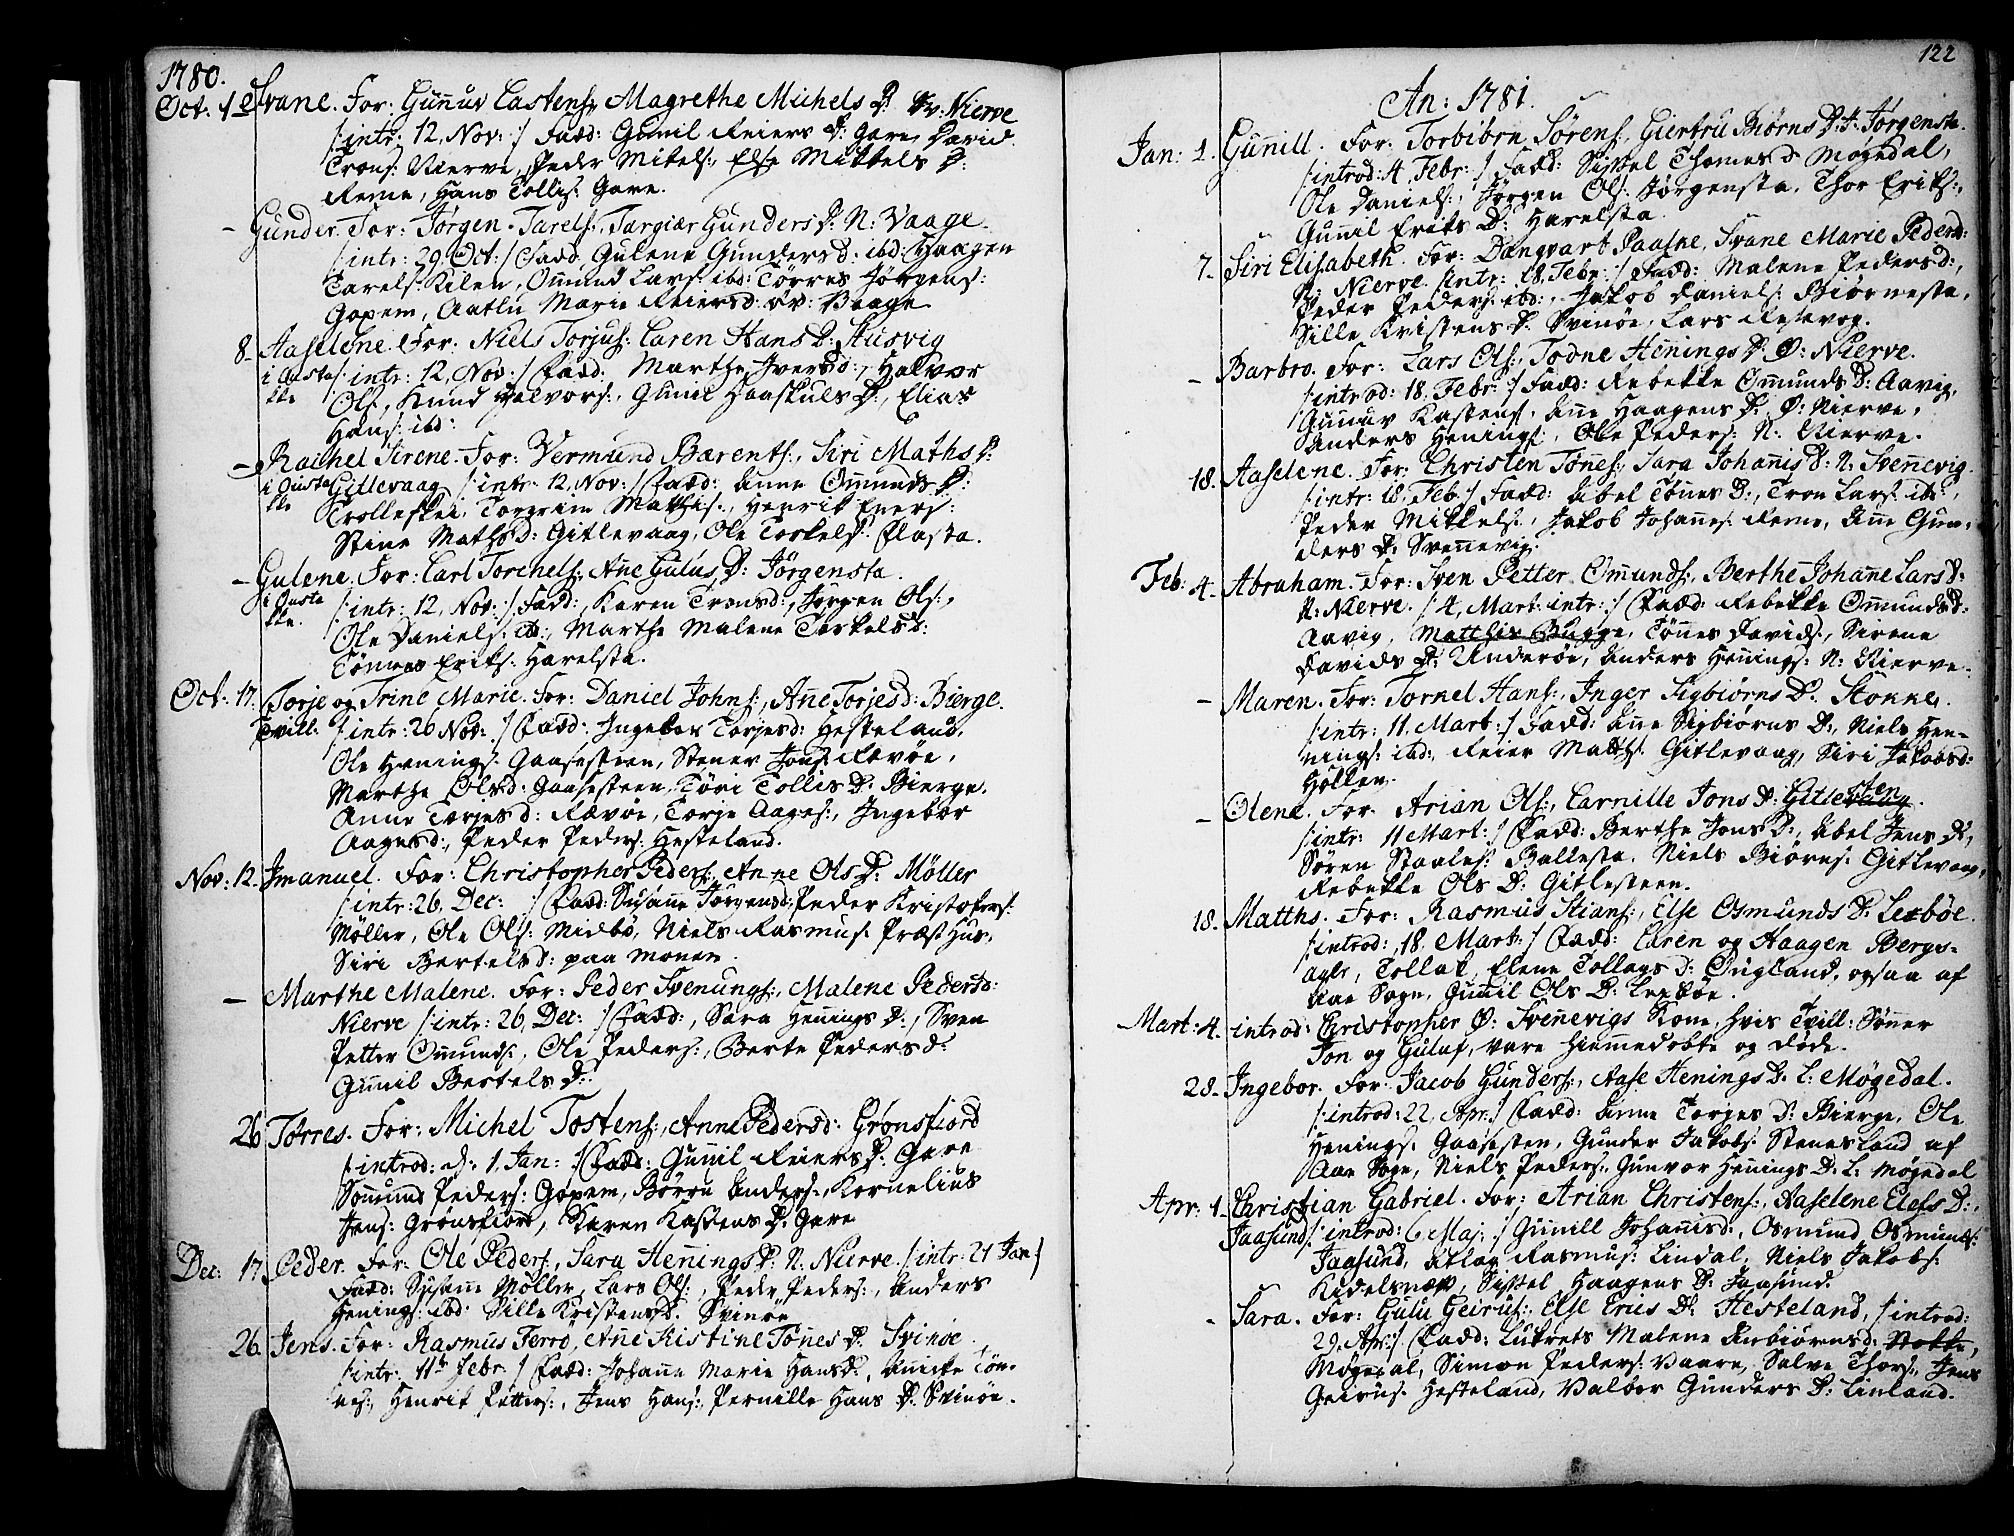 1780.
Oct. 1. Svane. For: Gunuv Castens:, Magrethe Michels D. Sv: Nierve
/: intr: 12, Nov: :/ Fadd: Gunil Reiers D: Gare, David
Trons: Nierve, Peder Mikels:, Else Mikkels D:
Reme, Hans Tollis: Gare.
- Gunder. For: Jørgen Tarels:, Targiær Gunders D: N: Vaage.
/: intr: 29. Oct: :/ Fadd. Gulene Gunders d: ibd: Haagen
Tarels: Kilen, Omund Lars: ibd: Tørres Jørgens:
Gopem, Aatlu Marie Reiersd: Vaage
8- Aaselene. For: Niels Torjus: Caren Hans D: Husvig
i Austa /: intr: 12, Nov: :/ Fadd: Marthe Ivers D:, Halvor
kke Ols:, Knud Halvors:, Gunil Haaskuls D:, Elias
Hans: ibd:
- Rachel Sirene. For: Vermund Bærents:, Siri Maths D:
i Austa Gitlevaag /: intr: 12, Nov: :/ Fadd: Anne Omunds D:
kke Trolleskei, Torgrim Mathis:, Henrik Eners:
Stine Maths D: Gitlevaag, Ole Torkels: Flasta.
- Gulene. For: Carl Torchels:, Ane Gulus D: Jørgensta.
i Austa /: intr: 12, Nov: :/ Fadd:, Karen Tronsd:, Jørgen Ols:,
kke. Ole Daniels: ibd:, Marthe Malene Torkels D:
Tønnes Eriks: Harelsta.
Oct: 17. Torje og Trine Marie. For: Daniel Johns:, Ane Torjes D: Bierge.
Tvill: /: intr: 26 Nov: :/ Fadd: Ingebor Torjesd: Hesteland,
Ole Hænings: Gaasesteen, Stener Jons: Rævøe,
Marthe Olsd: Gaasesteen, Tøri Tollis D: Bierge.
Anne Torjes d: Rævøe, Torje Aages:, Ingebor
Aagesd:, Peder Peders: Hesteland.
Nov: 12. Imanuel. For: Christopher Peders:, Anne Ols D: Møller
/: intr: 26. Dec: :/ Fadd: Susanne Jørgensd: Peder Kristofers:
Møller, Ole Ols: Midbø, Niels Rasmus: Præsthus,
Siri Bertelsd: paa Monen.
- Marthe Malene. For: Peder Svenungs:, Malene Pedersd:
Nierve /: intr: 26, Dec: :/ Fadd:, Sara Henings D:, Sven
Petter Omunds:, Ole Peders:, Berte Peders d:
Gunil Bertels D:
26 Tørres. For: Michel Tostens:, Anne Pedersd: Grønsfiord
/: introd: d: 1. Jan: :/ Fadd: Gunil Reiers D: Gare
Somund Peders: Gopem, Børre Anders:, Kornelius
Jens: Grønsfiord, Karen Kastens D: Gare
Dec: 17. Peder. For: Ole Peders:, Sara Henings D: N: Nierve. /: intr: 21 Jan :/
Fadd: Susanne Møller, Lars Ols:, Peder Peders:, Anders
Henings: ibd: Sille Kristensd. Svinøe
26. Jens. For: Rasmus Ferro, Ane Kistine Tønes D: Svinøe.
/: intr: 11te Febr: :/ Fadd: Johane Marie Hansd:, Tøn-
nes:, Henrik Petters:, Jens Hans:, Pernille Hans D: Svinøe.
122
An: 1781.
Jan: 1. Gunill. For: Torbiørn Sørens:, Giertru Biørns D: J: Jørgensta.
/: introd: 4. Febr: :/ Fadd: Sissel Thomesd: Møgedal,
Ole Daniels:, Jørgen Ols: Jørgensta. Thor Eriks:,
Gunil Eriks D: Harelsta.
7- Siri Elisabeth. For: Dangvart Paaske, Svane Marie Pedersd:
N: Nierve. /: intr: 18. Febr: :/ Fadd: Malene Pedersd:,
Peder Peders: ibd:, Jakob Daniels: Biørnesta,
Sille Kristens D: Svinøe, Lars Resevog.
- Barbro. For: Lars Ols:, Todne Henings D: Ø: Nierve.
/: introd: 18. Febr: :/ Fadd: Rebekke Omunds D: Aavig,
Gunuv Kastens:, Ane Haagens D: Ø: Nierve,
Anders Henings:, Ole Peders: N: Nierve.
18. Aaselene. For: Christen Tønes:, Sara Johanis D: N: Svenevig.
/: intr: 18, Feb: :/ Fadd: Abel Tønes D:, Tron Lars: ibd:,
Peder Mikkels:, Jakob Johanes: Reme, Ane Gun-
ders D: Svenevig.
Feb: 4- Abraham. For: Sven Petter Omunds:, Berthe Johane Lars D:
N: Nierve. /: 4, Mart: intr: :/ Fadd: Rebekke Omundsd:
Aavig, Matthis Bugge, Tønes Davids:, Sirene
Davids D: Underøe, Anders Henings: N: Nierve.
- Maren. For: Tornel Hans:, Inger Sigbiørns D. Stonne.
/: intr: 11. Mart: :/ Fadd: Ane Sigbiørns D:, Niels Hen-
nings: ibd:, Reier Maths: Gitlevaag, Siri Jakobsd:
Holken.
- Olene. For: Arian Ols:, Carnille Jons D: Gitlesten.
/: intr: 11 Mart: :/ Fadd: Berthe Jons D:, Abel Jens D:,
Søren Staales: Ballesta. Niels Biørns: Gitlevaag,
Rebekke Ols D: Gitlesteen.
18. Matths. For: Rasmus Stians:, Else Osmunds D: Lexbøe.
/: introd: 18. Mart: :/ Fadd: Caren og Haagen Bergs-
ager, Tollak, Elene Tollags D: Øugland, ogsaa af
Aae Sogn, Gunil Ols D: Lexbøe.
Mart: 4. introd: Christopher Ø: Svenevigs Kone, hvis Tvill: Sønner
Jon og Guluf, vare hiemmedøbte og døde.
28- Ingebor. For: Jacob Gunders:, Aase Henings D: L: Møgedal.
/: introd: 22, Apr: :/ Fadd: Anne Torjes D: Bierge, Ole
Henings: Gaasesten, Gunder Jakobs: Stenesland af
Aae Sogn, Niels Peders:, Gunvor Henings D: L: Møgedal
Apr: 1- Christian Gabriel. For: Arian Christens:, Aaselene Elefs D:,
Jaasund /: introd: 6 Maj: :/ Gunnill Johanisd:, Osmund Osmunds:
Jaasund, Atlag Rasmus: Lindal, Niels Jakobs:
Kidelsnæs, Sissel Haagens D: Jaasund.
- Sara. For: Gulu Geirus:, Else Erics D: Hesteland, /: introd:
29. Apr: :/ Fadd: Lukrets Malene Anbiørnsd:
Møgedal, Simon Peders: Vaare, Salve Thors:, Jens
Geirus: Hesteland, Valbor Gunders D: Linland.